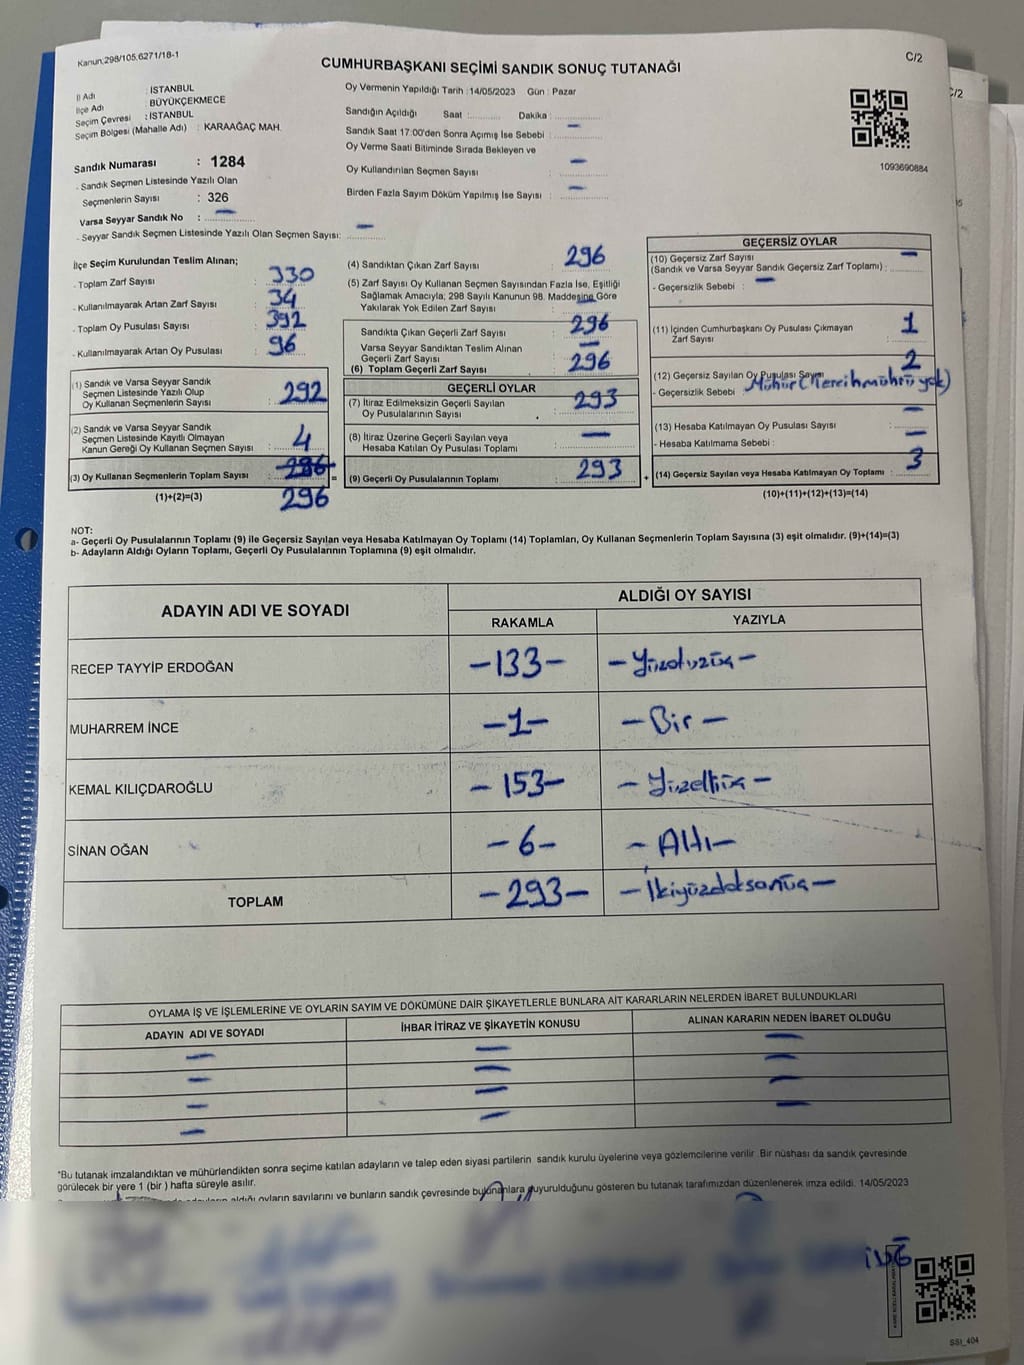 Kanun.298/105,6271/18-1
C/2
CUMHURBAŞKANI SEÇİMİ SANDIK SONUÇ TUTANAĞI
İl Adı : İSTANBUL
İlçe Adı : BÜYÜKÇEKMECE
Seçim Çevresi : İSTANBUL
Seçim Bölgesi (Mahalle Adı) : KARAAĞAÇ MAH.
Sandık Numarası : 1284
- Sandık Seçmen Listesinde Yazılı Olan
Seçmenlerin Sayısı : 326
Varsa Seyyar Sandık No : —
- Seyyar Sandık Seçmen Listesinde Yazılı Olan Seçmen Sayısı: —
Oy Vermenin Yapıldığı Tarih : 14/05/2023 Gün : Pazar
Sandığın Açıldığı Saat :.......... Dakika :..........
Sandık Saat 17:00'den Sonra Açımış İse Sebebi : —
Oy Verme Saati Bitiminde Sırada Bekleyen ve
Oy Kullandırılan Seçmen Sayısı : —
Birden Fazla Sayım Döküm Yapılmış İse Sayısı : —
1093690884
İlçe Seçim Kurulundan Teslim Alınan;
- Toplam Zarf Sayısı : 330
- Kullanılmayarak Artan Zarf Sayısı : 34
- Toplam Oy Pusulası Sayısı : 392
- Kullanılmayarak Artan Oy Pusulası : 96
(1) Sandık ve Varsa Seyyar Sandık
Seçmen Listesinde Yazılı Olup
Oy Kullanan Seçmenlerin Sayısı : 292
(2) Sandık ve Varsa Seyyar Sandık
Seçmen Listesinde Kayıtlı Olmayan
Kanun Gereği Oy Kullanan Seçmen Sayısı : 4
(3) Oy Kullanan Seçmenlerin Toplam Sayısı :
(1)+(2)=(3) 296
(4) Sandıktan Çıkan Zarf Sayısı : 296
(5) Zarf Sayısı Oy Kullanan Seçmen Sayısından Fazla İse, Eşitliği
Sağlamak Amacıyla; 298 Sayılı Kanunun 98. Maddesine Göre
Yakılarak Yok Edilen Zarf Sayısı : —
Sandıkta Çıkan Geçerli Zarf Sayısı : 296
Varsa Seyyar Sandıktan Teslim Alınan
Geçerli Zarf Sayısı : —
(6) Toplam Geçerli Zarf Sayısı : 296
GEÇERLİ OYLAR
(7) İtiraz Edilmeksizin Geçerli Sayılan
Oy Pusulalarının Sayısı : 293
(8) İtiraz Üzerine Geçerli Sayılan veya
Hesaba Katılan Oy Pusulası Toplamı : —
(9) Geçerli Oy Pusulalarının Toplamı : 293
GEÇERSİZ OYLAR
(10) Geçersiz Zarf Sayısı
(Sandık ve Varsa Seyyar Sandık Geçersiz Zarf Toplamı) : —
- Geçersizlik Sebebi : —
(11) İçinden Cumhurbaşkanı Oy Pusulası Çıkmayan
Zarf Sayısı : 1
(12) Geçersiz Sayılan Oy Pusulası Sayısı 2
- Geçersizlik Sebebi Mühür (Tercih mührü yok)
(13) Hesaba Katılmayan Oy Pusulası Sayısı : —
- Hesaba Katılmama Sebebi : —
(14) Geçersiz Sayılan veya Hesaba Katılmayan Oy Toplamı : 3
(10)+(11)+(12)+(13)=(14)
NOT:
a- Geçerli Oy Pusulalarının Toplamı (9) ile Geçersiz Sayılan veya Hesaba Katılmayan Oy Toplamı (14) Toplamları, Oy Kullanan Seçmenlerin Toplam Sayısına (3) eşit olmalıdır. (9)+(14)=(3)
b- Adayların Aldığı Oyların Toplamı, Geçerli Oy Pusulalarının Toplamına (9) eşit olmalıdır.
ADAYIN ADI VE SOYADI ALDIĞI OY SAYISI
RAKAMLA YAZIYLA
RECEP TAYYİP ERDOĞAN -133- -Yüzotuzüç-
MUHARREM İNCE -1- -Bir-
KEMAL KILIÇDAROĞLU -153- -Yüzelliüç-
SİNAN OĞAN -6- -Altı-
TOPLAM -293- -İkiyüzdoksanüç-
OYLAMA İŞ VE İŞLEMLERİNE VE OYLARIN SAYIM VE DÖKÜMÜNE DAİR ŞİKAYETLERLE BUNLARA AİT KARARLARIN NELERDEN İBARET BULUNDUKLARI
ADAYIN ADI VE SOYADI İHBAR İTİRAZ VE ŞİKAYETİN KONUSU ALINAN KARARIN NEDEN İBARET OLDUĞU
*Bu tutanak imzalandıktan ve mühürlendikten sonra seçime katılan adayların ve talep eden siyasi partilerin sandık kurulu üyelerine veya gözlemcilerine verilir. Bir nüshası da sandık çevresinde
görülecek bir yere 1 (bir ) hafta süreyle asılır.
adayların aldığı oyların sayılarını ve bunların sandık çevresinde bulunanlara duyurulduğunu gösteren bu tutanak tarafımızdan düzenlenerek imza edildi. 14/05/2023
SSI_404